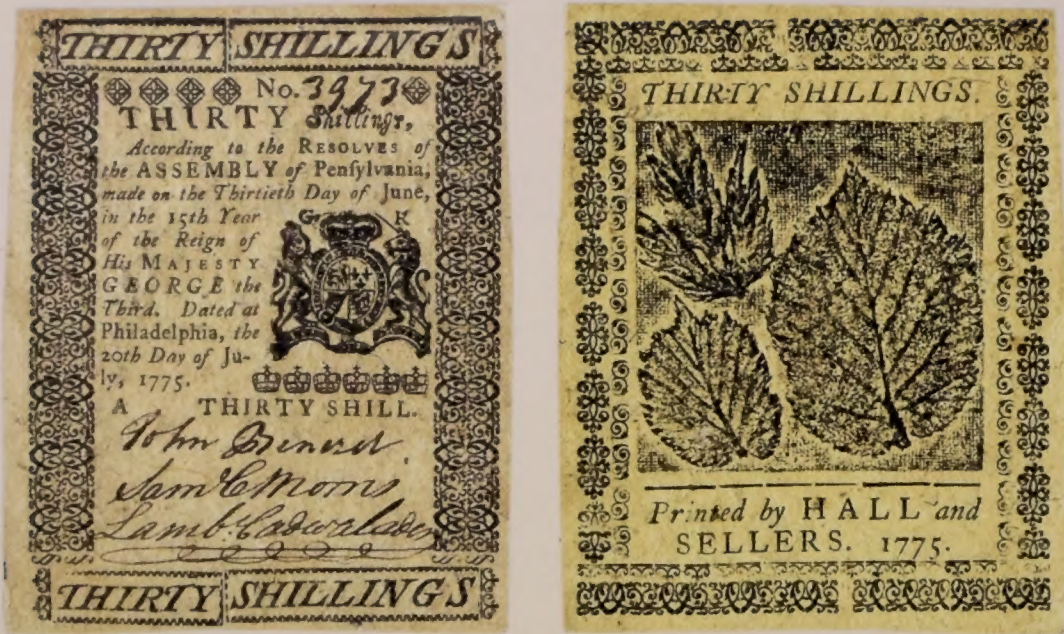 THIRTY SHILLINGS
No. 3973
THIRTY Shillings,
According to the RESOLVES of
the ASSEMBLY of Penſylvania,
made on the Thirtieth Day of June,
in the 15th Year
G R
of the Reign of
His MAJESTY
GEORGE the
Third. Dated at
Philadelphia, the
20th Day of Ju-
ly, 1775.
A THIRTY SHILL.
John
Saml C Morris
Lamb. Cadwalader
THIRTY SHILLINGS
THIRTY SHILLINGS.
Printed by HALL and
SELLERS. 1775.